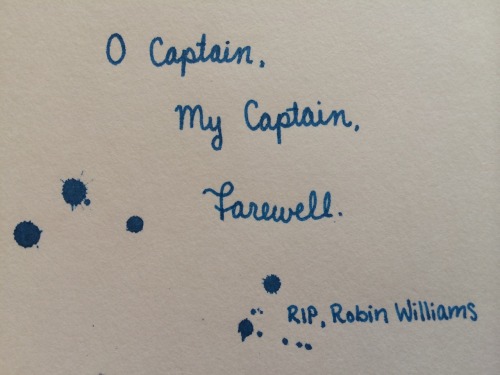 O Captain,
My Captain,
Farewell.
RIP, Robin Williams